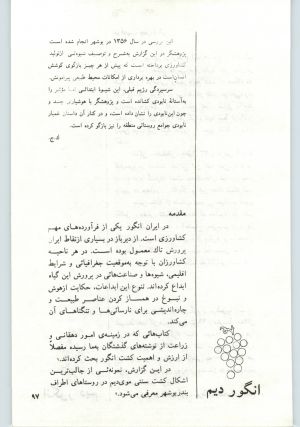 این بررسی در سال ۱۳۵۶ در بوشهر انجام شده است
پژوهشگر در این گزارش به‌شرح و توصیف شیوه‌ئی ازتولید
کشاورزی پرداخته است که پیش از هر چیز بازگوی کوشش
انسان‌ست در بهره برداری از امکانات محیط طبیعی پیرامونش.
سرسپردگی رژیم قبلی، این شیوهٔ ابتدائی اما مؤثر را
به‌آستانهٔ نابودی کشانده است و پژوهشگر با هوشیاری چند و
چون این‌نابودی را نشان‌داده است، و در کنار آن داستان غمبار
نابودی جوامع روستائی منطقه را نیز بازگو کرده است.
ک.ج.
مقدمه
در ایران انگور یکی از فرآورده‌های مهم
کشاورزی است. از دیرباز در بسیاری ازنقاط ایران
پرورش تاک معمول بوده است. در هر ناحیه
کشاورزان با توجه به‌موقعیت جغرافیائی و شرایط
اقلیمی، شیوه‌ها و صناعت‌هائی در پرورش این گیاه
ابداع کرده‌اند. تنوع این ابداعات، حکایت ازهوش
و نبوغ در همساز کردن عناصر طبیعت و
چاره‌اندیشی برای نارسائی‌ها و تنگناهای آن
می‌کند.
کتاب‌هائی که در زمینه‌ی امور دهقانی و
زراعت از نوشته‌های گذشتگان به‌ما رسیده مفصلاً
از ارزش و اهمیت کشت انگور بحث کرده‌اند.
در این گزارش، نمونه‌ئی از جالب‌ترین
اشکال کشت سنتی موی‌دیم در روستاهای اطراف
بندربوشهر معرفی می‌شود.
انگور دیم
۹۷